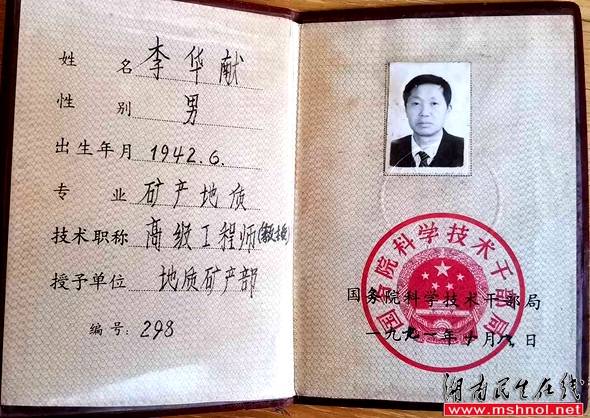 姓 名 李华献
性 别 男
出生年月 1942.6.
专 业 矿产地质
技术职称 高级工程师
授予单位 地质矿产部
编号: 298
国务院科学技术干部局
国务院科学技术干部局
一九九一年 月 日
湖南民生在线
www.mshnol.net